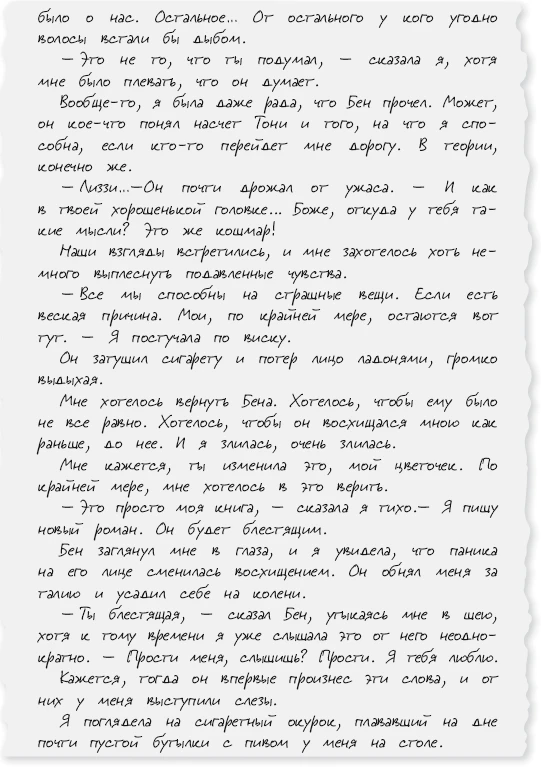 было о нас. Остальное... От остального у кого угодно
волосы встали бы дыбом.
— Это не то, что ты подумал, — сказала я, хотя
мне было плевать, что он думает.
Вообще-то, я была даже рада, что Бен прочел. Может,
он кое-что понял насчет Тони и того, на что я спо-
собна, если кто-то перейдет мне дорогу. В теории,
конечно же.
— Лиззи...—Он почти дрожал от ужаса. — И как
в твоей хорошенькой головке... Боже, откуда у тебя та-
кие мысли? Это же кошмар!
Наши взгляды встретились, и мне захотелось хоть не-
много выплеснуть подавленные чувства.
— Все мы способны на страшные вещи. Если есть
веская причина. Мои, по крайней мере, остаются вот
тут. — Я постучала по виску.
Он затушил сигарету и потер лицо ладонями, громко
выдыхая.
Мне хотелось вернуть Бена. Хотелось, чтобы ему было
не все равно. Хотелось, чтобы он восхищался мною как
раньше, до нее. И я злилась, очень злилась.
Мне кажется, ты изменила это, мой цветочек. По
крайней мере, мне хотелось в это верить.
— Это просто моя книга, — сказала я тихо.— Я пишу
новый роман. Он будет блестящим.
Бен заглянул мне в глаза, и я увидела, что паника
на его лице сменилась восхищением. Он обнял меня за
талию и усадил себе на колени.
— Ты блестящая, — сказал Бен, утыкаясь мне в шею,
хотя к тому времени я уже слышала это от него неодно-
кратно. — Прости меня, слышишь? Прости. Я тебя люблю.
Кажется, тогда он впервые произнес эти слова, и от
них у меня выступили слезы.
Я поглядела на сигаретный окурок, плававший на дне
почти пустой бутылки с пивом у меня на столе.